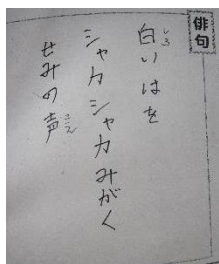 俳句
白いはを
シャカシャカみがく
せみの声